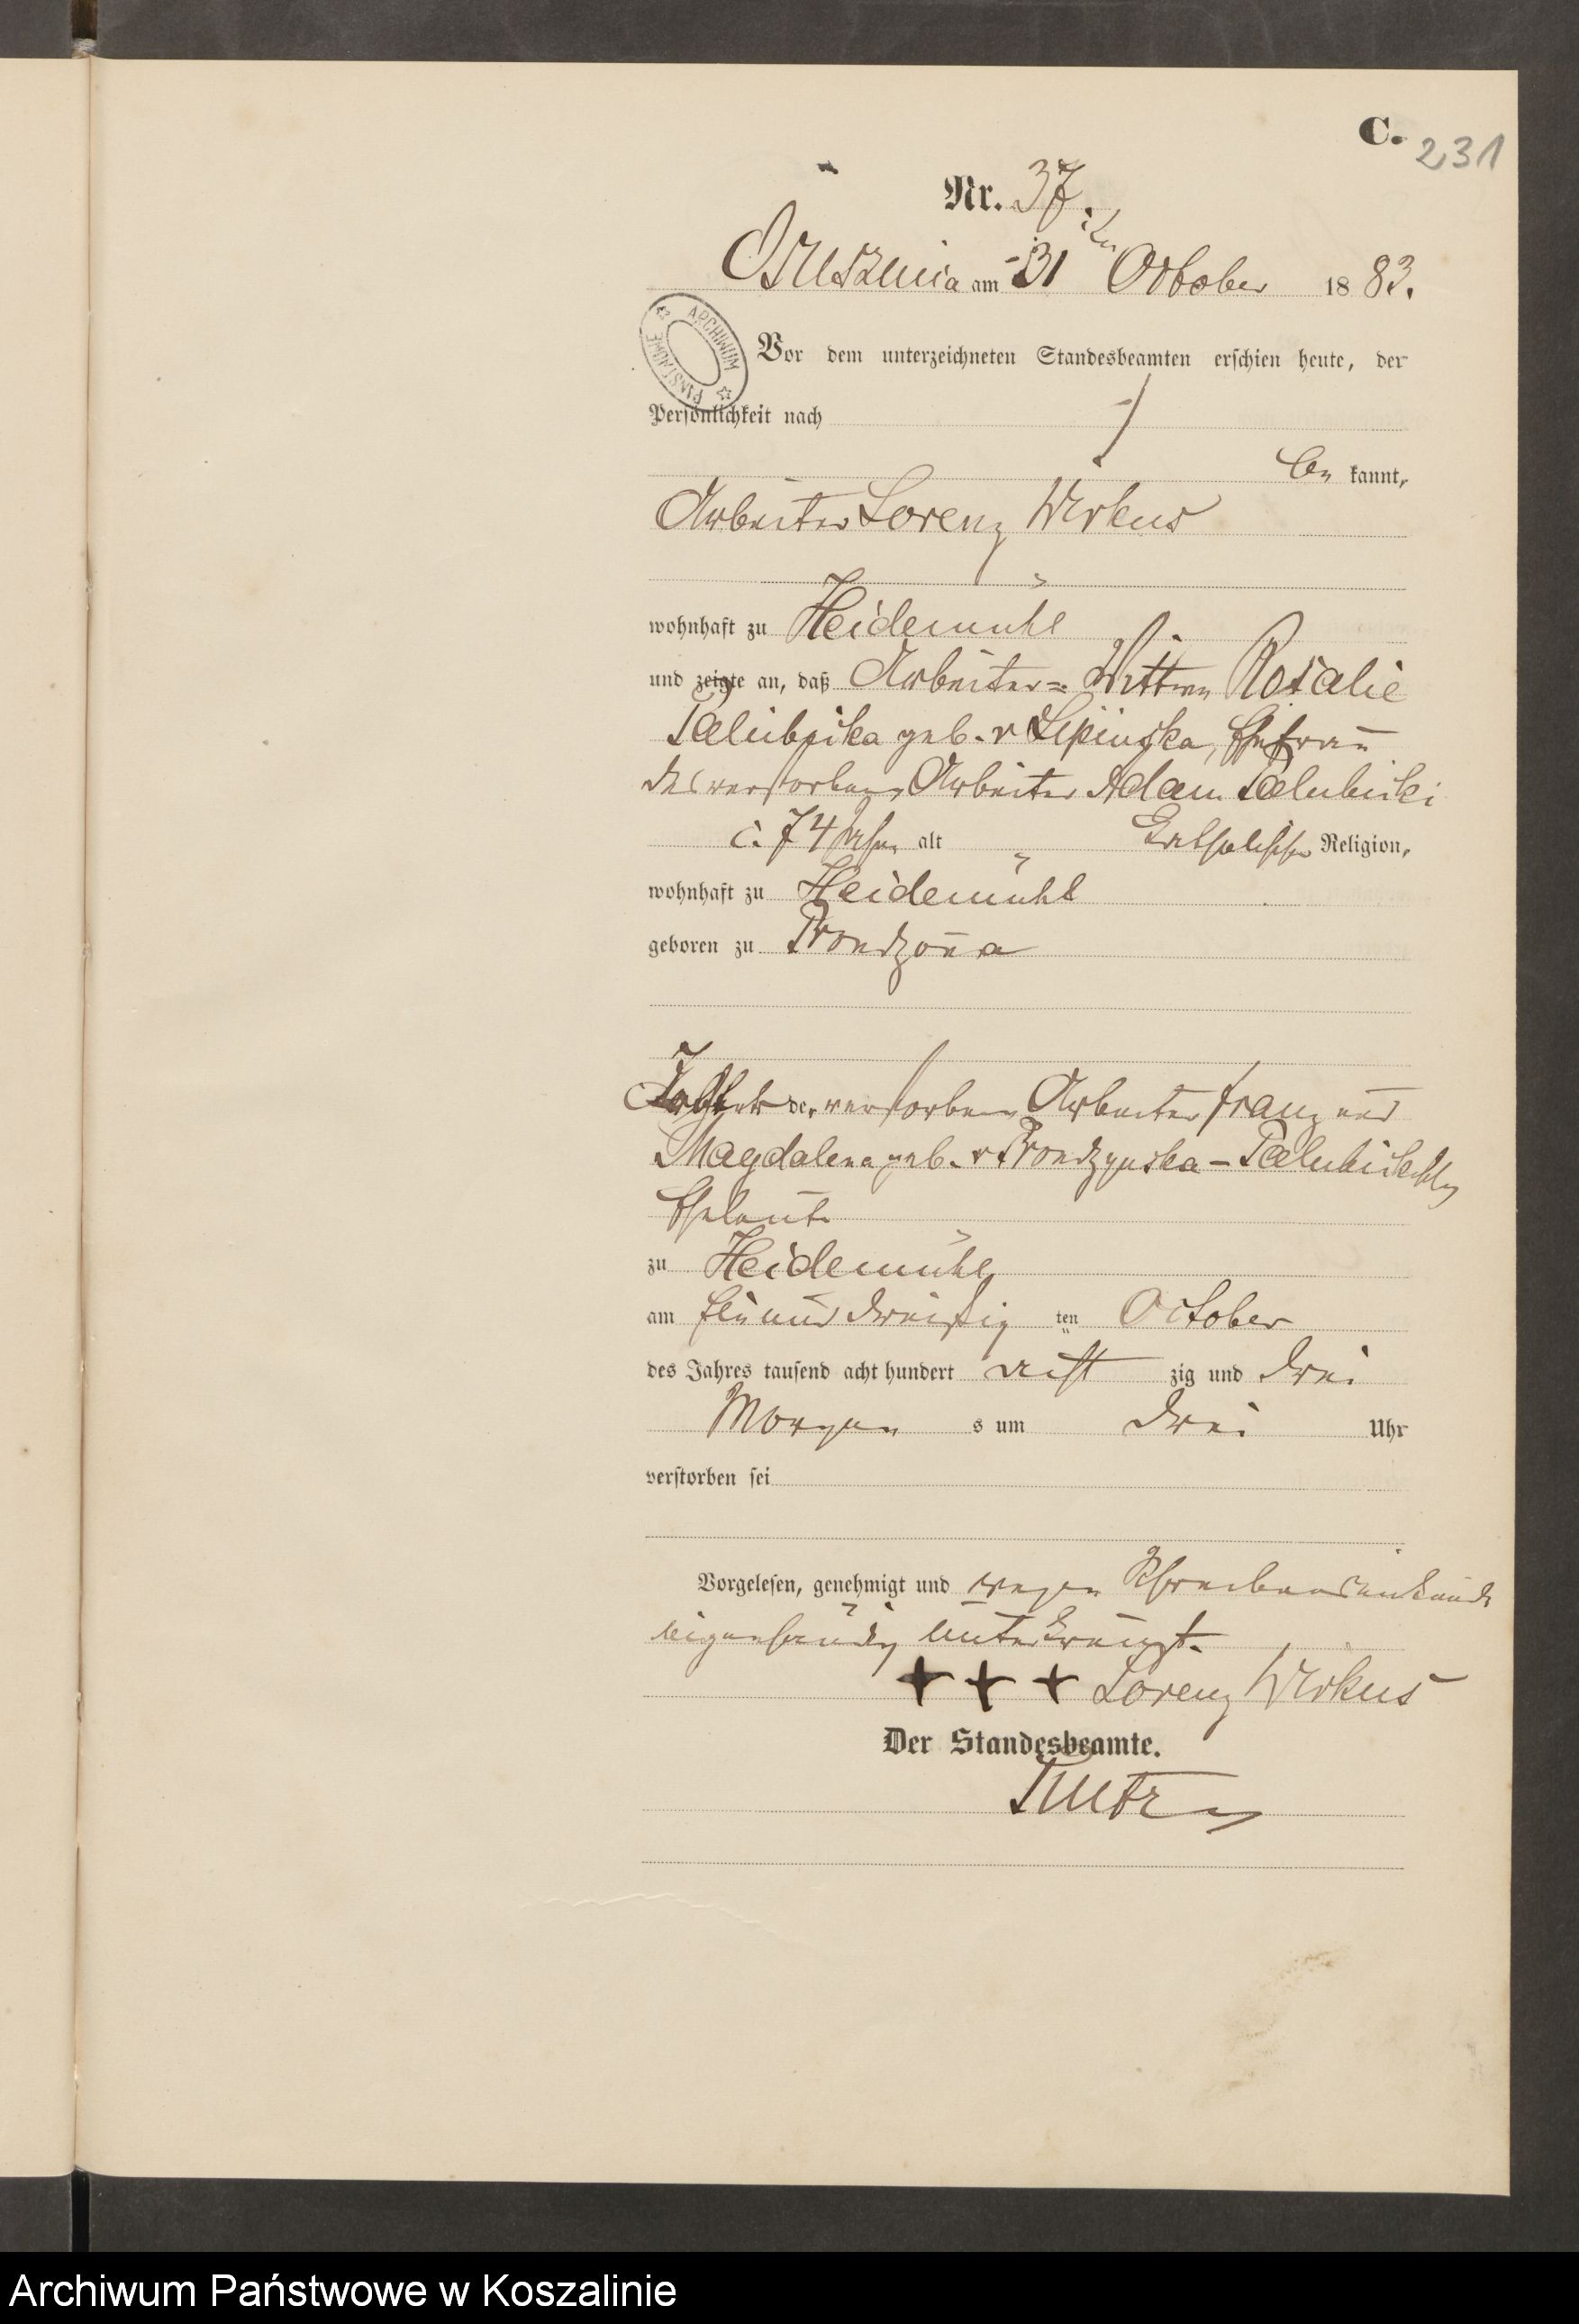 C.
231
Nr. 37.
Osuszniça am 31ten October 1883.
ARCHIWUM PAŃSTWOWE
Vor dem unterzeichneten Standesbeamten erschien heute, der
Persönlichkeit nach
be kannt,
Arbeiter Lorenz Wirkus
wohnhaft zu Heidemühl
und zeigte an, daß Arbeiter= Wittwe Rosalie
geb. v Lipinska, Ehefrau
des verstorbenen Arbeiter Adam
c. 74 Jahre alt katholischer Religion,
wohnhaft zu Heidemühl
geboren zu Prondzona
Tochter der verstorbenen Arbeiter Franz und
Magdalena geb. v Prondzynska –
Eheleute
zu Heidemühl
am ein und dreißig ten October
des Jahres tausend acht hundert acht zig und drei
Morgen s um drei Uhr
verstorben sei
Vorgelesen, genehmigt und wegen Schreibensunkunde
eigenhändig unterkreuzt.
+ + + Lorenz Wirkus
Der Standesbeamte.
Archiwum Państwowe w Koszalinie